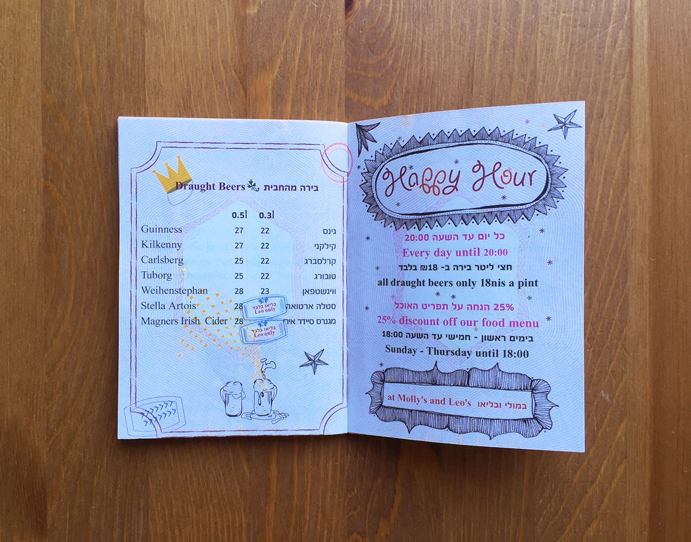 Draught Beers בירה מהחבית
0.5l 0.3l
Guinness 27 22 גינס
Kilkenny 27 22 קילקני
Carlsberg 25 22 קרלסברג
Tuborg 25 22 טובורג
Weihenstephan 28 23 ווינשטפאן
Stella Artois 28 סטלה ארטואה
בליאו בלבד
Leo only
Magners Irish Cider 28 מגנרס סיידר
בליאו בלבד
Leo only
Happy Hour
כל יום עד השעה 20:00
Every day until 20:00
חצי ליטר בירה ב- 18₪ בלבד
all draught beers only 18nis a pint
25% הנחה על תפריט האוכל
25% discount off our food menu
בימים ראשון - חמישי עד השעה 18:00
Sunday - Thursday until 18:00
at Molly's and Leo's במולי ובליאו